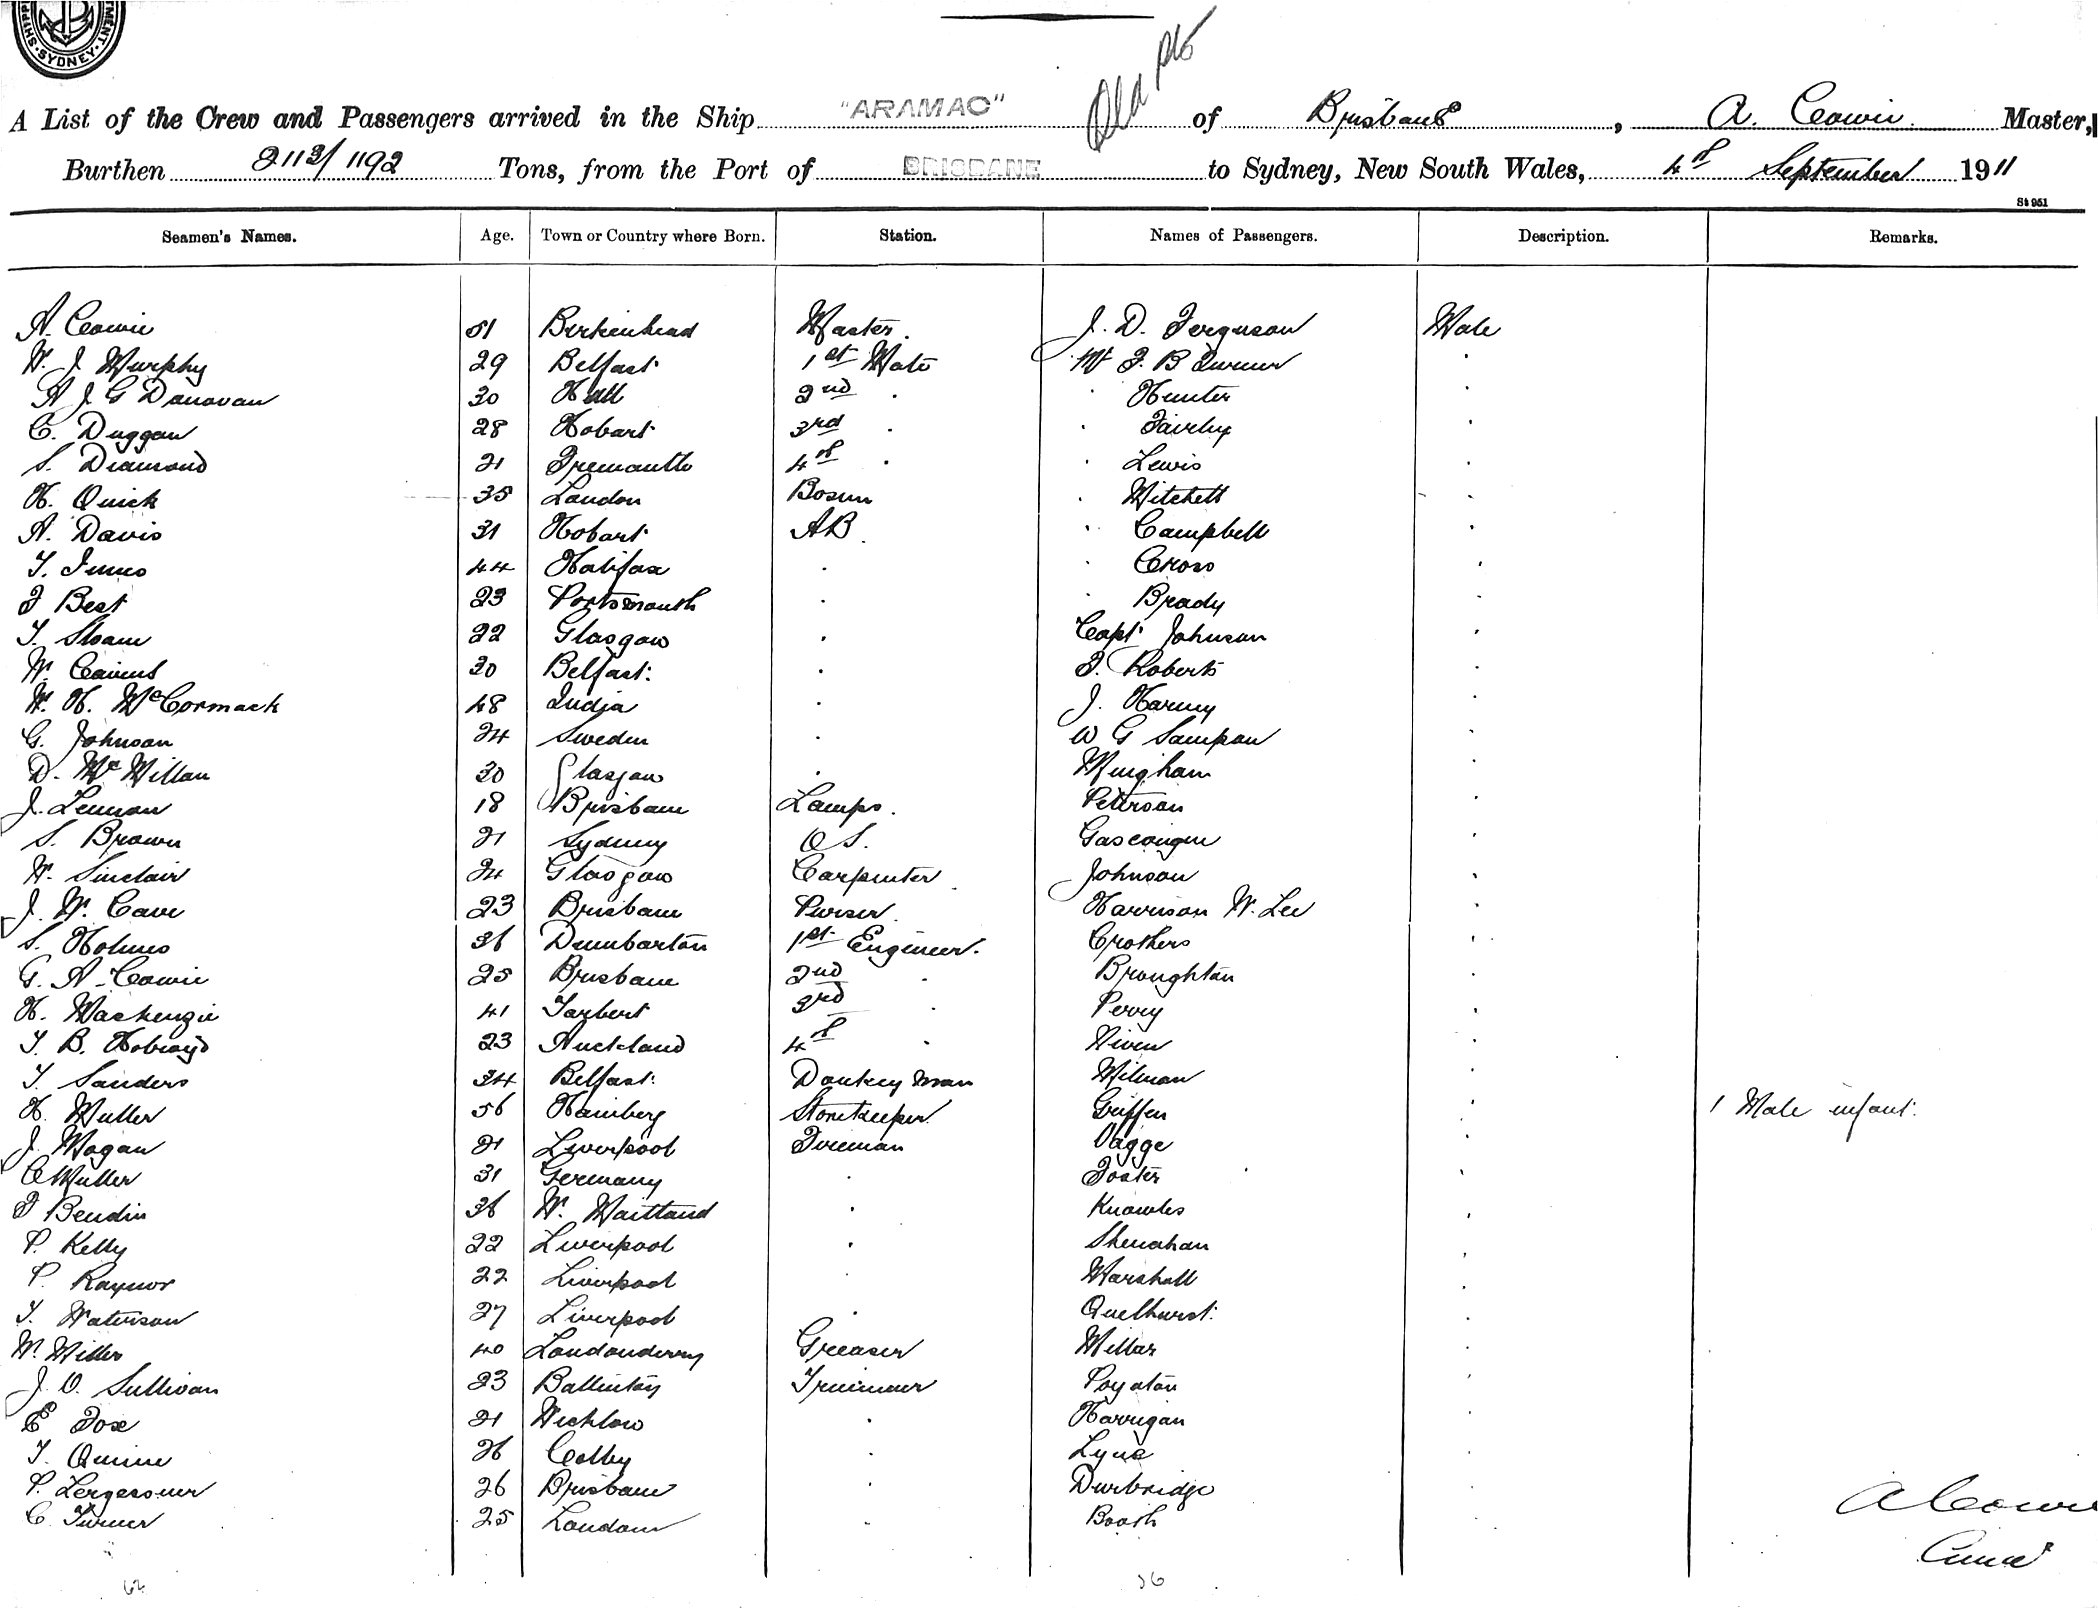 SYDNEY
A List of the Crew and Passengers arrived in the Ship "ARAMAC" of Brisbane, A. Cowie Master,
Burthen 2113/1192 Tons, from the Port of BRISBANE to Sydney, New South Wales, 4th September 1911
St 951
Seamen's Names. Age. Town or Country where Born. Station. Names of Passengers. Description. Remarks.
A. Cowie 51 Birkenhead Master. J. D. Ferguson Male
W. J. Murphy 29 Belfast 1st Mate Mr F. B Turner
A J G Donovan 30 Hull 2nd Hunter
C. Duggan 28 Hobart 3rd Fairley
S. Diamond 21 Fremantle 4th Lewis
H. Quick 35 London Bosun Mitchell
A. Davis 31 Hobart AB Campbell
T. Innes 44 Halifax Cross
F Best 23 Portsmouth Brady
T. Sloane 22 Glasgow Capt Johnson
W. 30 Belfast. F. Roberts
W. H. McCormack 48 India J.
G. Johnson 24 Sweden W G Sampson
D. McMillan 30 Glasgow
J. Lennon 18 Brisbane Lamps. Peterson
S. Brown 21 Sydney O S. Gascoigne
W. Sinclair 24 Glasgow Carpenter Johnson
J. W. Cave 23 Brisbane Purser. Harrison W. Lee
S. Holmes 36 Dumbarton 1st Engineer. Crothers
G. A. Cowie 25 Brisbane 2nd Broughton
H. Mackenzie 41 Tarbert 3rd Perry
T. B. Holroyd 23 Auckland 4th Niven
T. Sanders 34 Belfast Donkeyman Milman
H. Muller 56 Hamberg Storekeeper Griffen 1 Male infant.
J. Hogan 21 Liverpool Fireman Vagge
C Muller 31 Germany Foster
F Bendin 36 W. Maitland Knowles
P. Kelly 22 Liverpool Shenahan
P. Raynor 22 Liverpool Marshall
T. Waterson 27 Liverpool Quelhurst
W. Miller 40 Londonderry Greaser Millar
J. O. Sullivan 23 Trimmer Poynton
E Fox 21 Wicklow Harrigan
T. Quinn 26 Colby Lyne
P. Lergessner 26 Brisbane Durbridge
C. Turner 25 London Booth
A Cowie
62 36